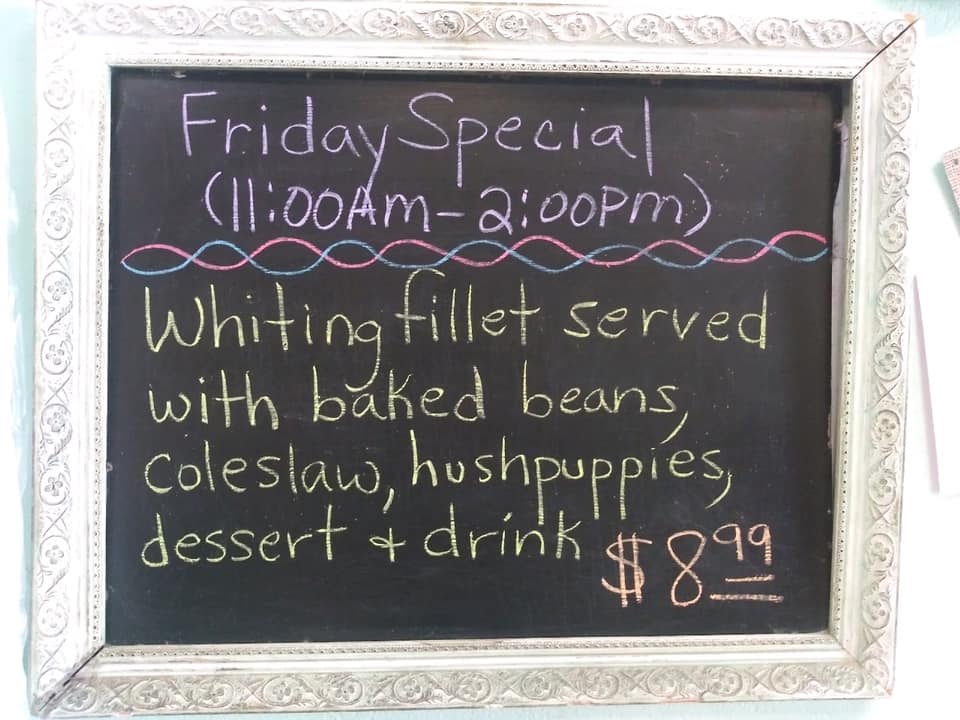 Friday Special
(11:00Am-2:00pm)
Whiting fillet served
with baked beans,
coleslaw, hushpuppies,
dessert & drink $8.99